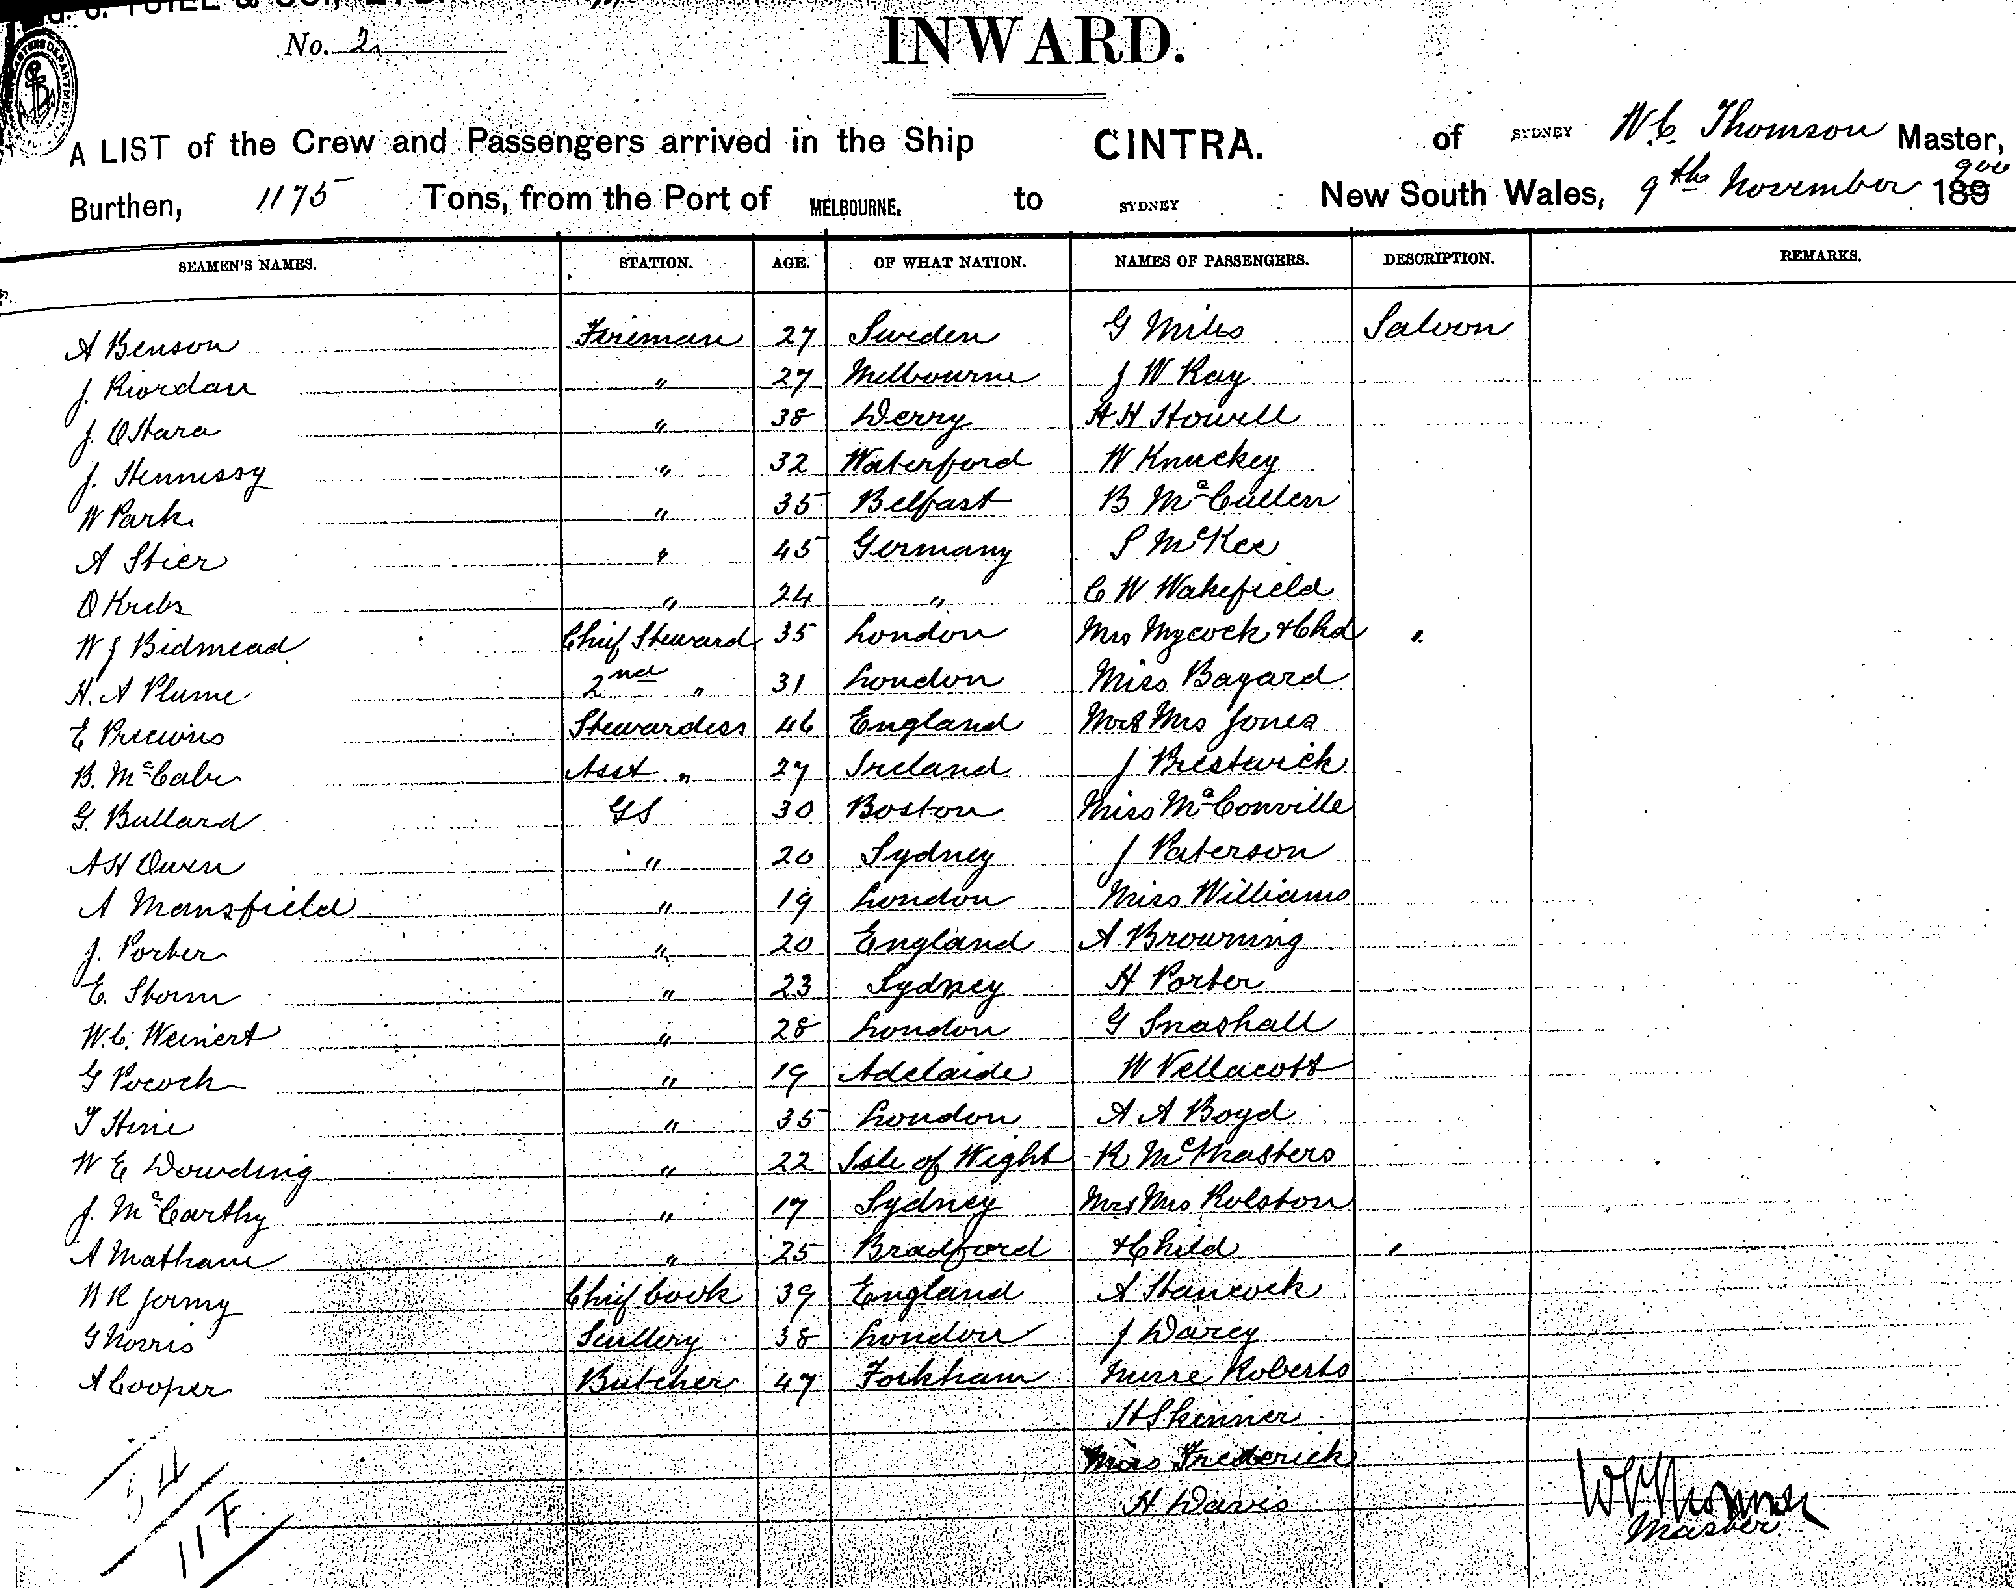 No. 2
INWARD.
A LIST of the Crew and Passengers arrived in the Ship CINTRA. of SYDNEY W. C. Thomson Master,
Burthen, 1175 Tons, from the Port of MELBOURNE. to SYDNEY New South Wales, 9th November 189 900
SEAMEN'S NAMES. STATION. AGE. OF WHAT NATION. NAMES OF PASSENGERS. DESCRIPTION. REMARKS.
A Benson Fireman 27 Sweden G Miles Saloon
J. Riordan " 27 Melbourne J W Ray
J. OHara " 38 Derry H H Howell
J. Hennessy " 32 Waterford W Knuckey
W Park " 35 Belfast B McCullen
A Stier " 45 Germany S McKee
O Krebs " 24 " C W Wakefield
W J Bidmead Chief Steward 35 London Mrs Mycock & Chd "
H. A Plume 2nd " 31 London Miss Bagard
E Precious Stewardess 46 England Mr & Mrs Jones
B. McCabe Asst " 27 Ireland J Prestwich
G. Bullard GS 30 Boston Miss McConville
A H Owen " 20 Sydney J Paterson
A Mansfield " 19 London Miss Williams
J. Porter " 20 England A Browning
E. Storm " 23 Sydney H Porter
W. C. Weinert " 28 London G Snashall
G Pocock " 19 Adelaide W Vellacott
T Hine " 35 London A A Boyd
W E Dowding " 22 Isle of Wight R McMasters
J. McCarthy " 17 Sydney Mr & Mrs Rolston
A Matham " 25 Bradford & Child "
W R Jermy Chief Cook 39 England A Hancock
G Norris Scullery 38 London J Darcy
A Cooper Butcher 47 Nurse Roberts
H Skinner
Miss Frederick
H Davis
54
117
W C Thomson
Master